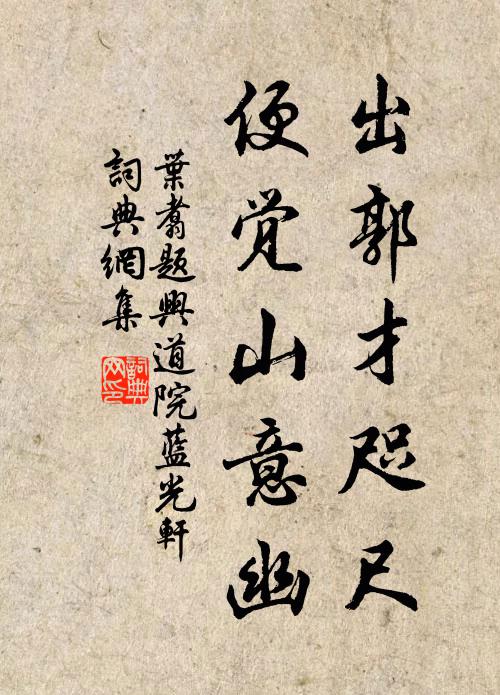 出郭才咫尺
便觉山意幽
葉翥題興道院藍光軒
詞典網集
詞典
网印